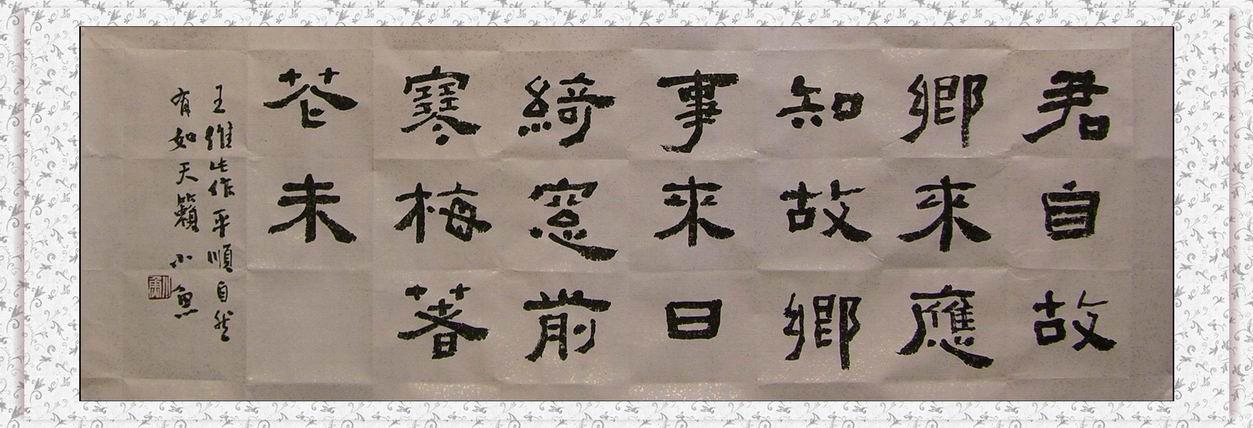 君自故
鄉來應
知故鄉
事來日
綺窓前
寒梅著
花未
王維此作平順自然
有如天籟 小魚